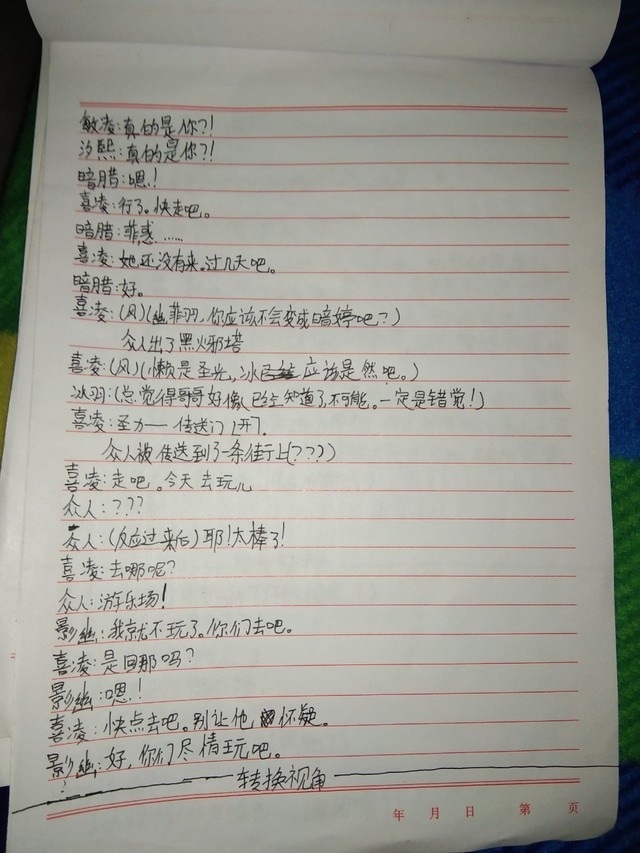 敏凌:真的是你?!
汐熙:真的是你?!
暗腊:嗯!
喜凌:行了。快走吧。
暗腊:菲惑……
喜凌:她还没有来。过几天吧。
暗腊:好。
喜凌:(风)(幽菲羽,你应该不会变成暗婷吧?)
众人出了黑火邪塔
喜凌:(风)(懒是圣光,冰 应该是然吧。)
冰羽:(总觉得哥哥好像已经知道了,不可能。一定是错觉!)
喜凌:圣力一传送门(开)。
众人被传送到了一条街上(???)
喜凌:走吧。今天去玩儿
众人:???
众人:(反应过来后)耶!太棒了!
喜凌:去哪呢?
众人:游乐场!
影幽:我就不玩了。你们去吧。
喜凌:是回那吗?
影幽:嗯!
喜凌:快点去吧。别让他怀疑。
影幽:好,你们尽情玩吧。
转换视角
年 月 日 第 页